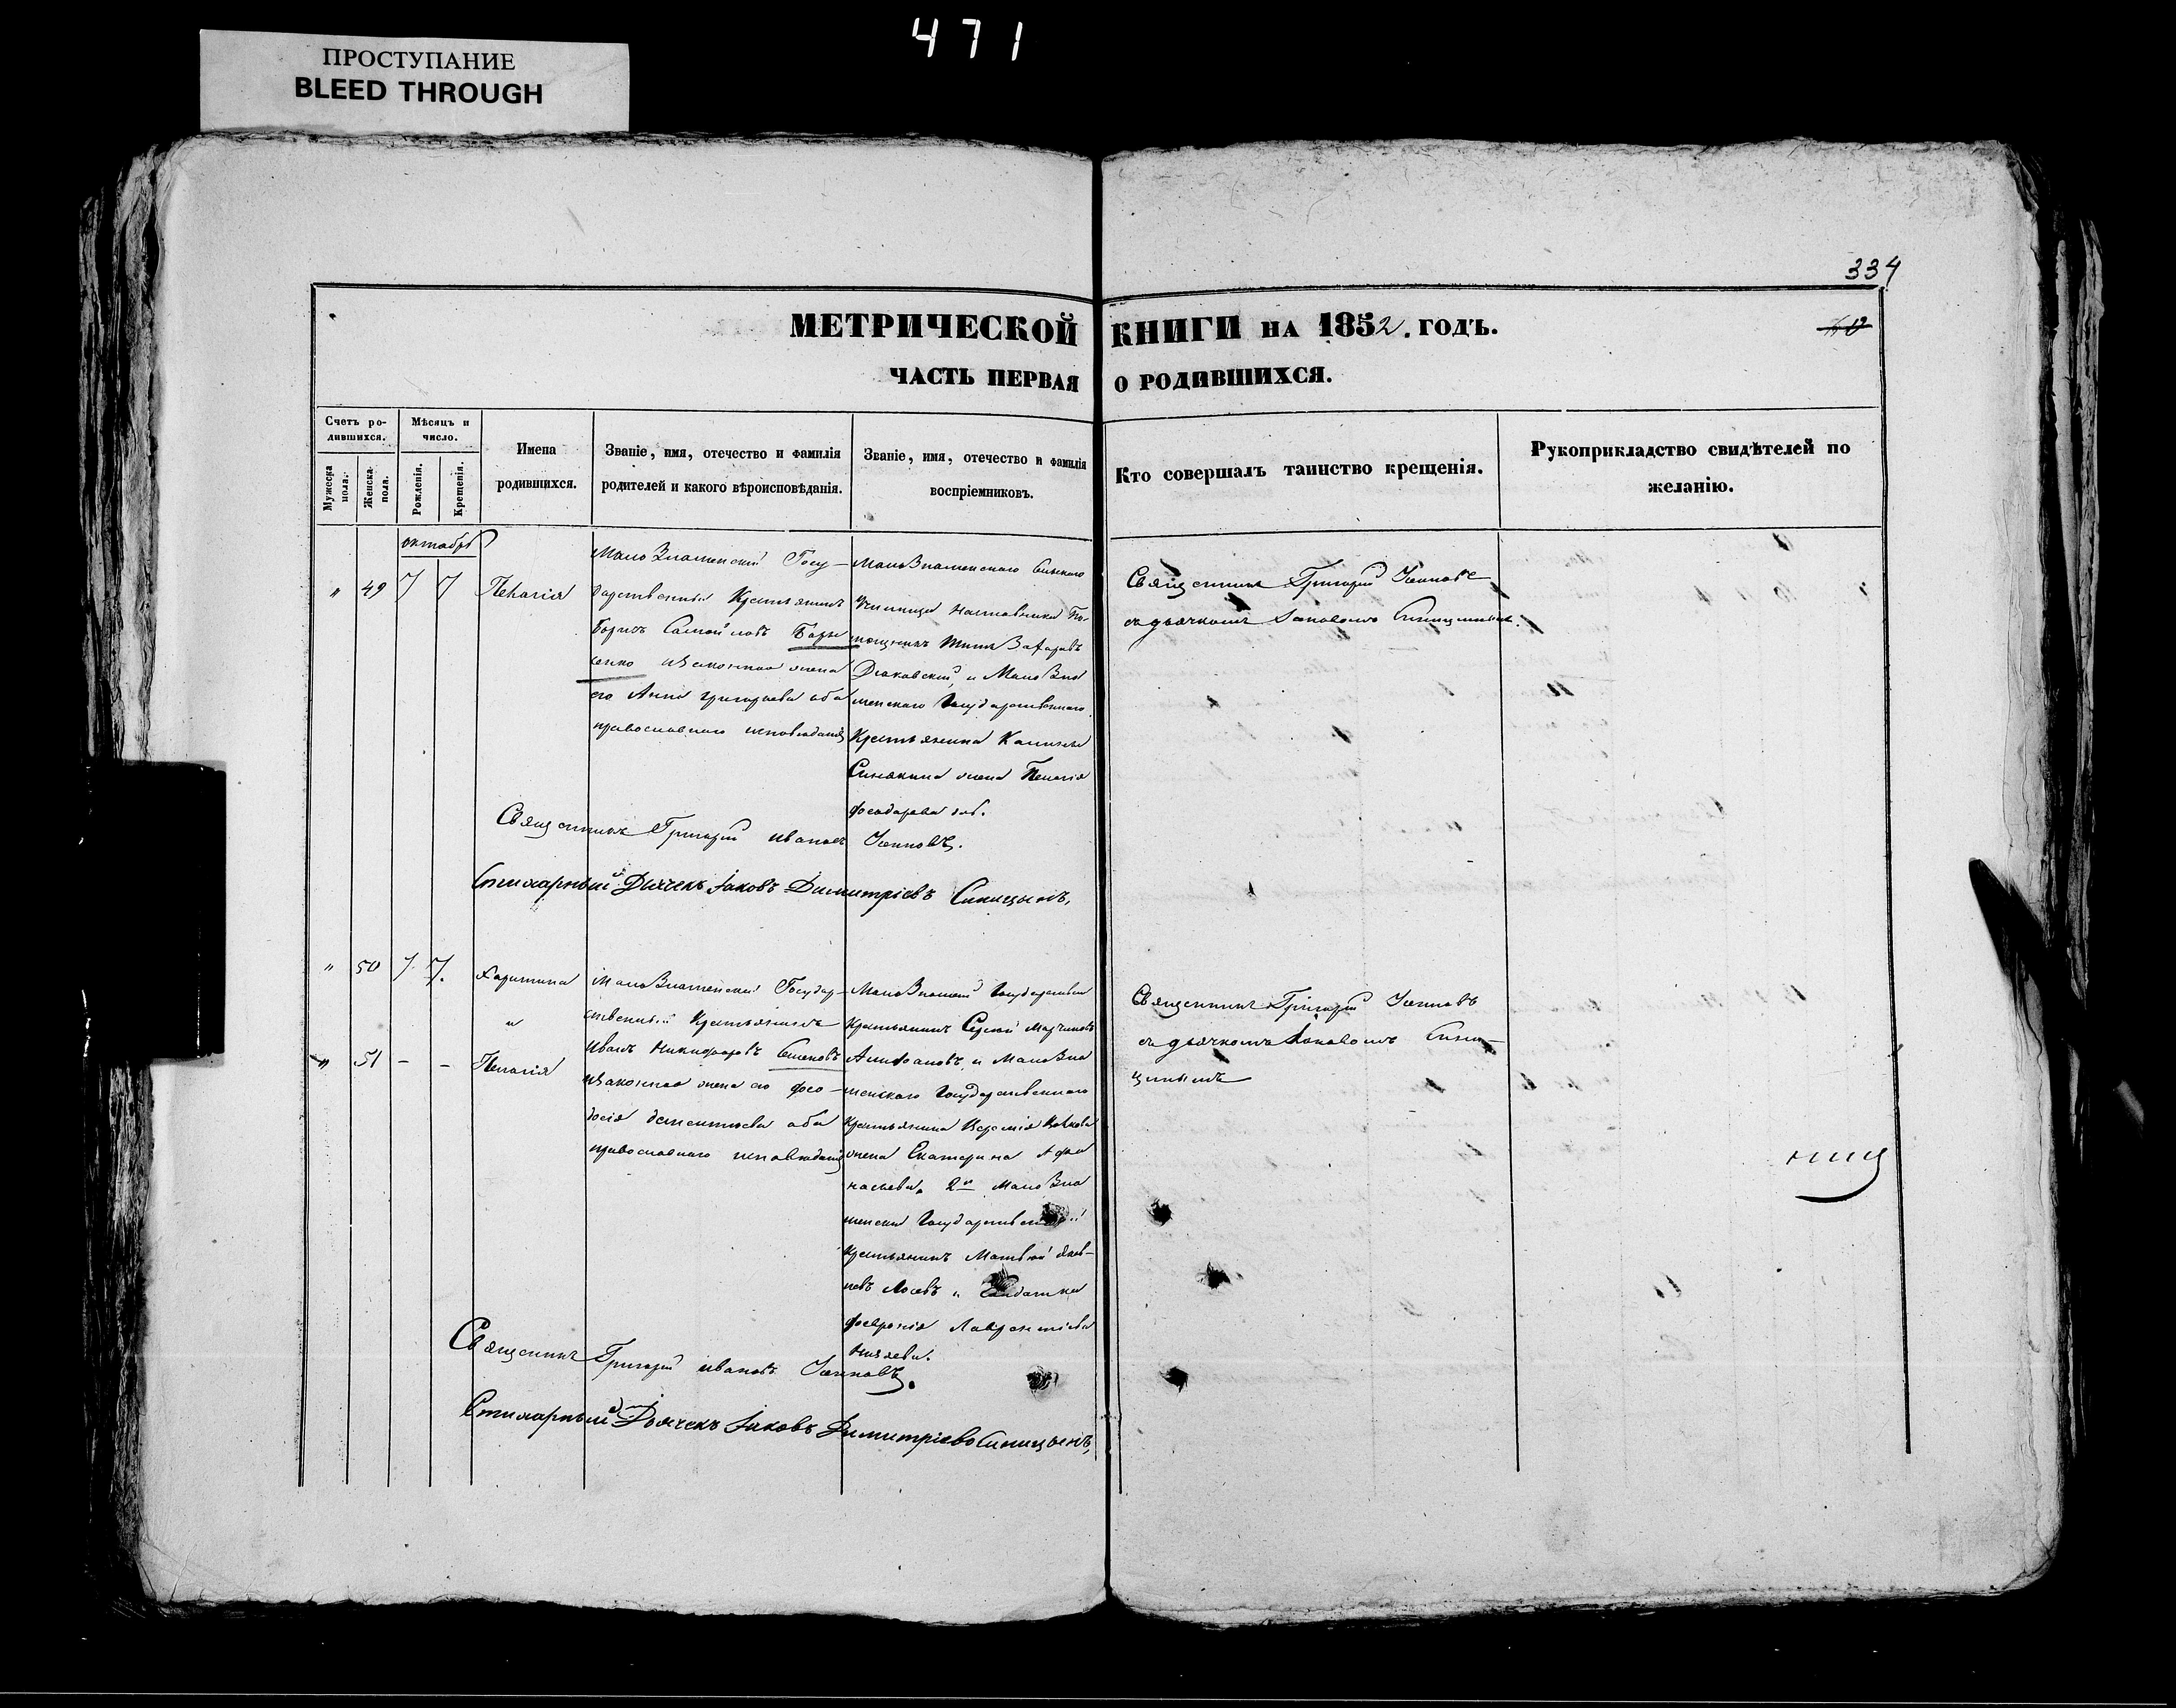 471
ПРОСТУПАНИЕ
BLEED THROUGH
334
МЕТРИЧЕСКОЙ КНИГИ НА 1852. ГОДЪ.
ЧАСТЬ ПЕРВАЯ О РОДИВШИХСЯ.
Счетъ ро-
дившихся.
Мужеска
пола.
Женска
пола.
Мѣсяцъ и
число.
Рожденія.
Крещенія.
Имена
родившихся.
Званіе, имя, отечество и фамилія
родителей и какого вѣроисповѣданія.
Званіе, имя, отечество и фамилія
воспріемниковъ.
Кто совершалъ таинство крещенія.
Рукоприкладство свидѣтелей по
желанію.
октябрь
" 49 7 7
Пелагія
Мало Знаменскій Госу-
дарственный Крестьянинъ
Борисъ Самойловъ Бори
сенко изаконная жена
его Анна григорьева оба
православнаго исповѣданія
МалоЗнаменскаго Сельскаго
Училища наставника По-
мощникъ Захаровъ
и МалоЗна
менскаго Государственнаго
Крестьянина
Синякина жена Пелагія
феодорова
Священникъ Григорій
съ дьячкомъ Іаковомъ Синицынымъ.
Священникъ Григорій Ивановъ
Стихарный Дьячекъ Іаковъ Димитріевъ Синицынъ,
" 50 7 7.
Харитина
"
" 51 - -
Пелагія
МалоЗнаменскій Государ-
ственный Крестьянинъ
Иванъ Никифоровъ
изаконная жена его фео-
досія дементьева оба
православнаго исповѣданія
МалоЗнамен Государствен
Крестьянинъ Сергей
и МалоЗна
менскаго Государственнаго
Крестьянина
жена Екатерина Афа
насьева. 2й МалоЗна
менскій Государственный
Крестьянинъ Матвей Яков-
левъ Лосевъ и
февронія Лаврентіева
Князева.
Священникъ Григорій
съ дьячкомъ Іаковомъ Сини-
цынымъ
Священникъ Григорій Ивановъ
Стихарный Дьячекъ Іаковъ Димитріевъ Синицынъ,